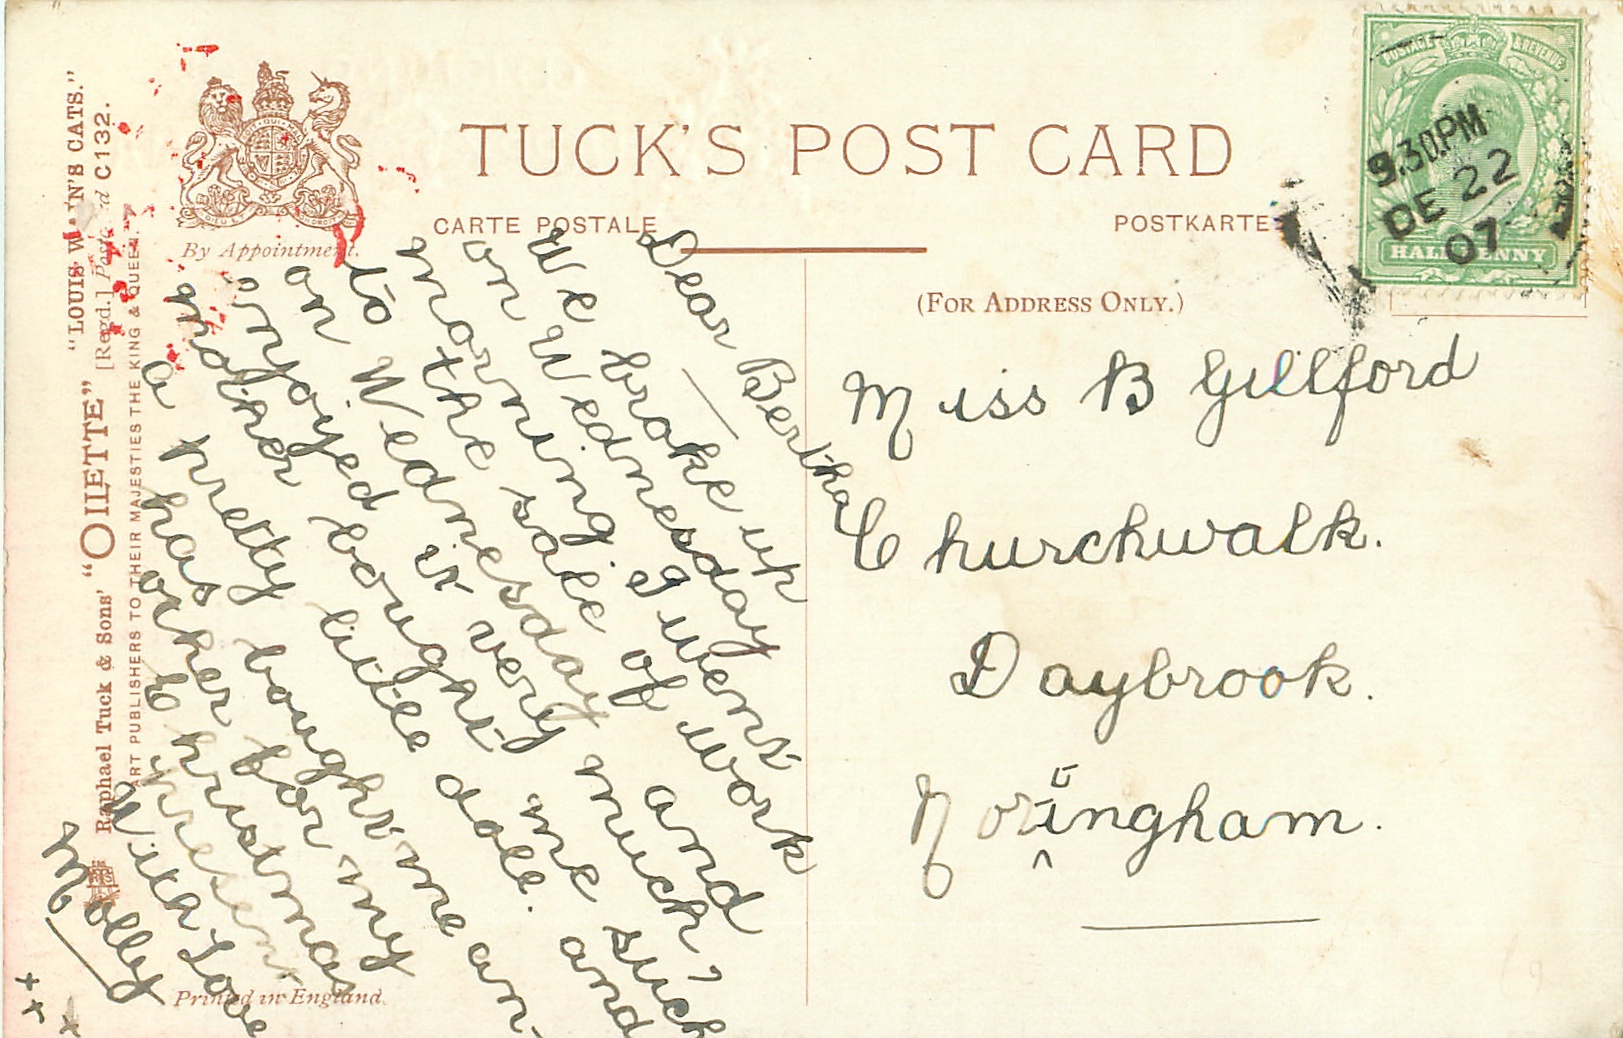 "LOUIS WAIN'S CATS."
Raphael Tuck & Sons' "OILETTE" [Regd.] Postcard C 132.
ART PUBLISHERS TO THEIR MAJESTIES THE KING & QUEEN.
By Appointment.
TUCK'S POST CARD
CARTE POSTALE
POSTKARTE
(FOR ADDRESS ONLY.)
POSTAGE & REVENUE
HALFPENNY
9.30PM
DE 22
07
Dear Bertha
We broke up
on Wednesday
morning I went
to the sale of work
on Wednesday and
enjoyed it very much,
mother bought me such
a pretty little doll. and
has bought me an-
other for my
Christmas
present
With Love
Molly
Miss B Gillford
Churchwalk.
Daybrook.
Nottingham.
Printed in England.